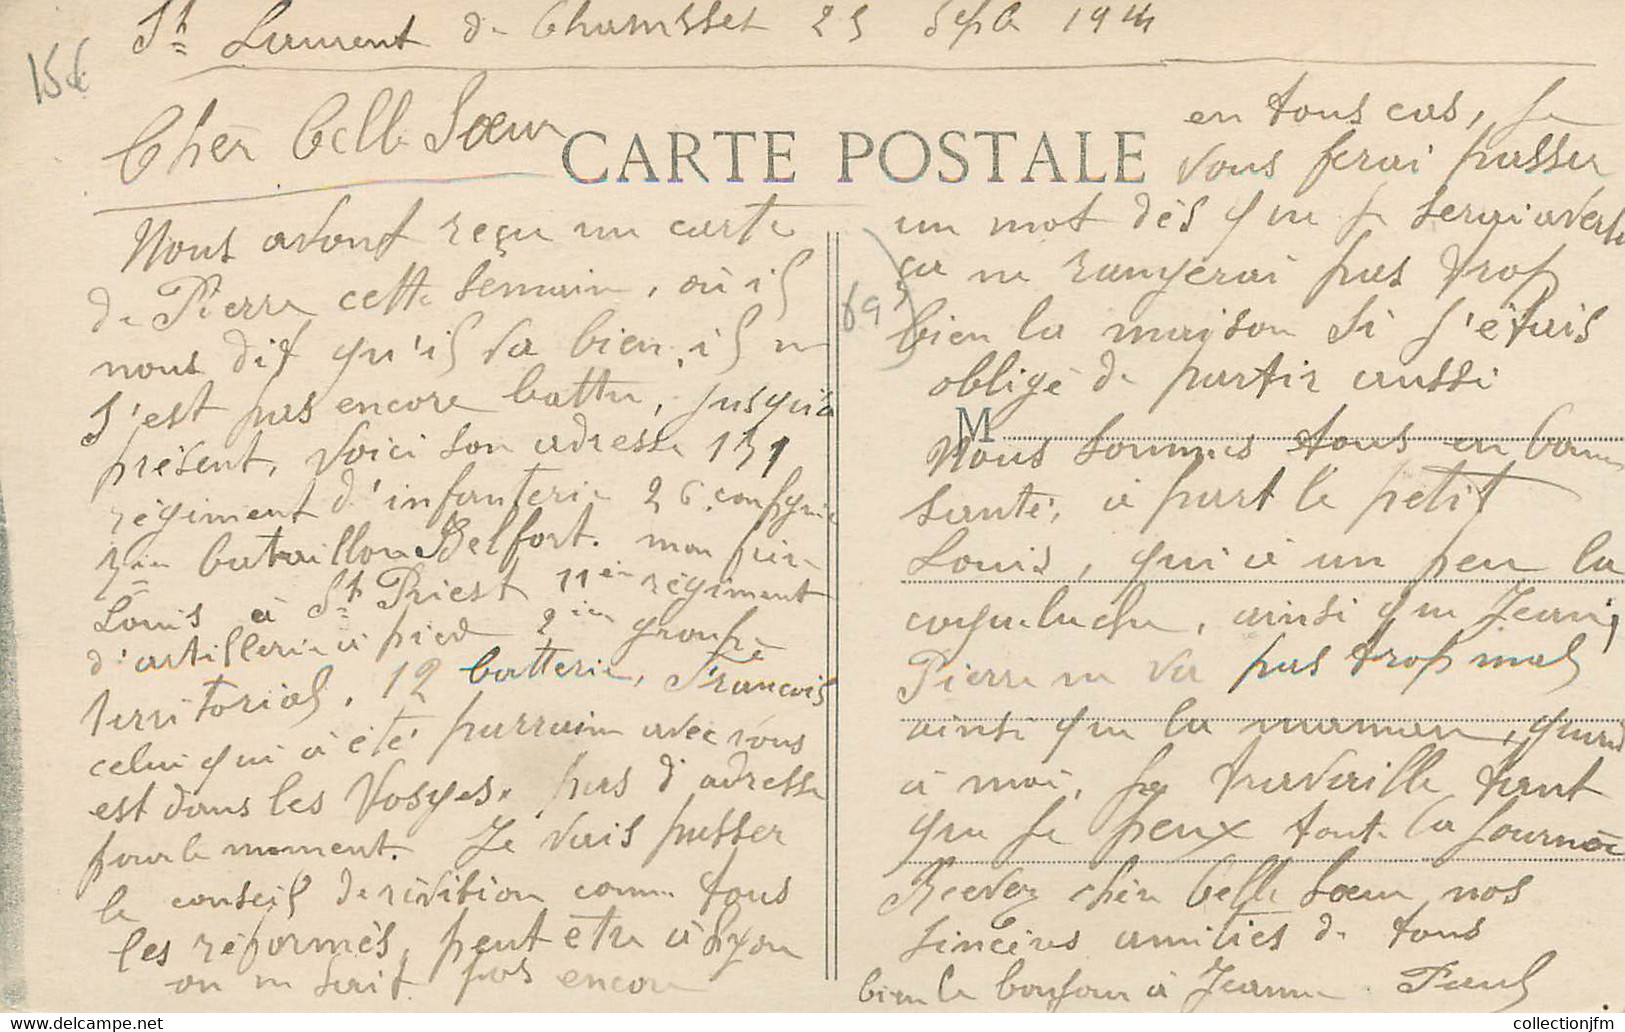 St Laurent de Chamisset 25 Sept 1914
15€
Chèr Belle Sœur
CARTE POSTALE
Nous avont reçu un carte
de Pierre cette semain, où il
nous dit qu'il va bien, il n
s'est pas encore battu, jusqu'à
présent, voici son adresse 131
régiment d'infanterie 26 compgnie
bataillon Belfort. mon frère
Louis à St Priest 11èm régiment
d'artillerie à pied 2ièm groupe
territorial, 12 batterie, François
celui qui à été parrain avec vous
est dans les Vosges, pas d'adresse
pour le moment. Je vais passer
le conseil de révision comme tous
les réformés, peut etre à Lyon
on ne sait pas encore
en tous cas, je
vous ferai passer
un mot dès que je serai averti
ça ne rangerai pas trop
69
bien la maison si j'étais
obligé de partir aussi
M
Nous sommes tous en bonne
santé, à part le petit
Louis, qui à un peu la
coqueluche, ainsi que Jean,
Pierre ne va pas trop mal
ainsi que la maman, quand
à moi, je travaille tant
que je peux tout la journée
Recevez chèr belle sœur nos
sincères amitiés de tous
bien le bonjour à Jeanne Paul
collectionjfm